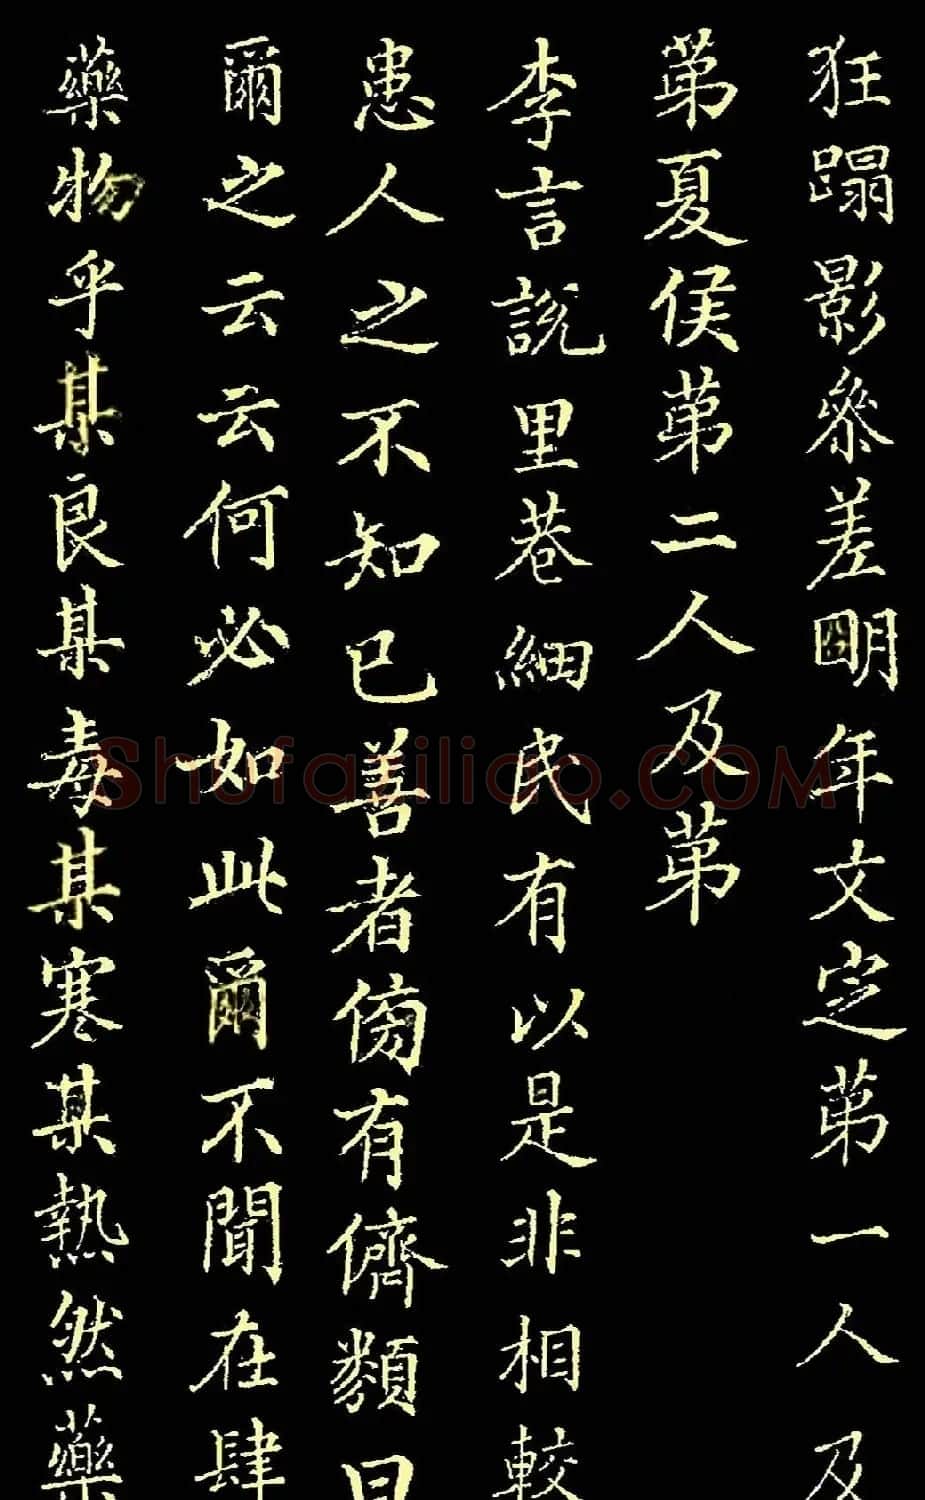 狂蹋影參差明年文定第一人及
第夏侯第二人及第
李言說里巷細民有以是非相較
患人之不知已善者傍有儕類曰
爾之云云何必如此爾不聞在肆
藥物乎某良某毒某寒某熱然藥
Shufaziliao.COM